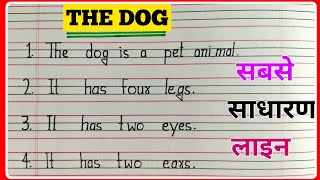 THE DOG
1. The dog is a pet animal.
2. It has four legs.
3. It has two eyes.
4. It has two ears.
सबसे
साधारण
लाइन